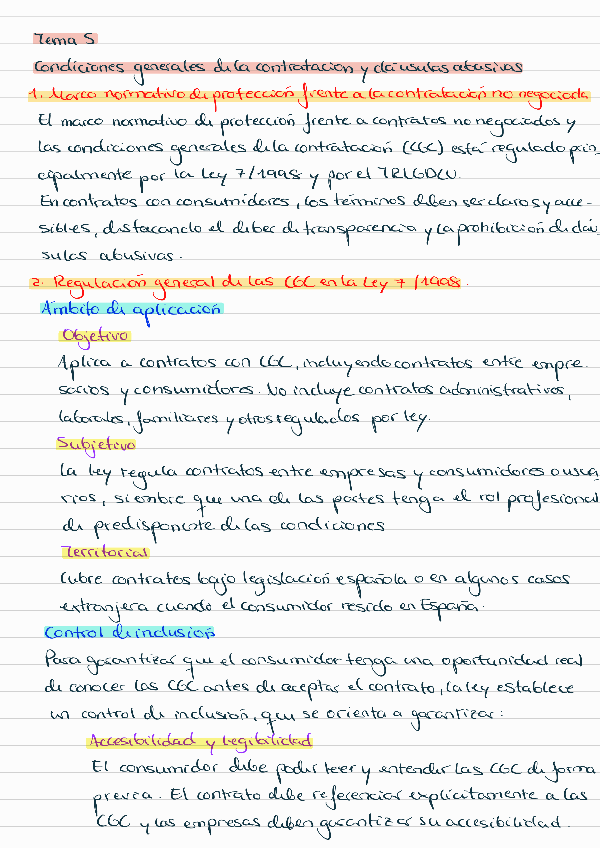 Tema 5
Condiciones generales de la contratación y cláusulas abusivas
1. Marco normativo de protección frente a la contratación no negociada
El marco normativo de protección frente a contratos no negociados y
las condiciones generales de la contratación (CGC) está regulado prin-
cipalmente por la Ley 7/1998 y por el TRLGDCU.
En contratos con consumidores, los términos deben ser claros y acce-
sibles, destacando el deber de transparencia y la prohibición de cláu
sulas abusivas.
2. Regulación general de las CGC en la Ley 7/1998.
Ámbito de aplicación
Objetivo
Aplica a contratos con CGC, incluyendo contratos entre empre
sarios y consumidores. No incluye contratos administrativos,
laborales, familiares y otros regulados por ley.
Subjetivo
La ley regula contratos entre empresas y consumidores o usua
rios, siembre que una de las partes tenga el rol profesional
de predisponente de las condiciones
Territorial
Cubre contratos bajo legislación española o en algunos casos
extranjera cuando el consumidor resida en España.
Control de inclusión
Para garantizar que el consumidor tenga una oportunidad real
de conocer las CGC antes de aceptar el contrato, la ley establece
un control de inclusión, que se orienta a garantizar:
Accesibilidad y legibilidad
El consumidor debe poder leer y entender las CGC de forma
previa. El contrato debe referenciar explícitamente a las
CGC y las empresas deben garantizar su accesibilidad.